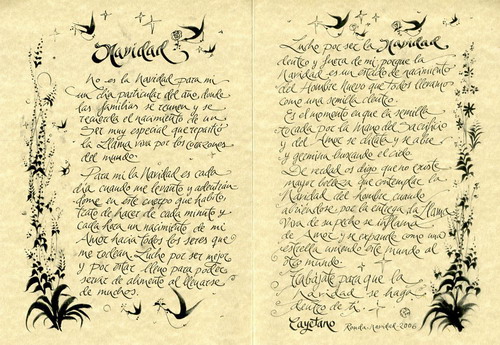 Navidad
No es la Navidad para mi
un dia particular del año, donde
las familias se reunen y se
recuerda el nacimiento de un
Ser muy especial que repartió
la Llama viva por los corazones
del mundo.
Para mi la Navidad es cada
dia cuando me levanto y adentran
dome en este cuerpo que habito,
trato de hacer de cada minuto y
cada hora un nacimiento de mi
Amor hacia todos los seres que
me rodean. Lucho por ser mejor
y por estar lleno para poder
servir de alimento al llenarse
de muchos.
Lucho por ser la Navidad
dentro y fuera de mi porque la
Navidad es un estado de nacimiento
del Hombre Nuevo que todos llevamos
como una semilla dentro.
Es el momento en que la semilla
tocada por la Mano del Sacrificio
y del Amor se dilata y se abre
y germina buscando el cielo.
De verdad os digo que no existe
mayor belleza que contemplar la
Navidad del hombre cuando
abriendose por la entrega, la Llama
Viva de su pecho se inflama
de Amor y se expande como una
estrella uniendo este mundo al
otro mundo.
Trabájate para que la
Navidad se haga
dentro de ti.
Cayetano Ronda, Navidad 2006